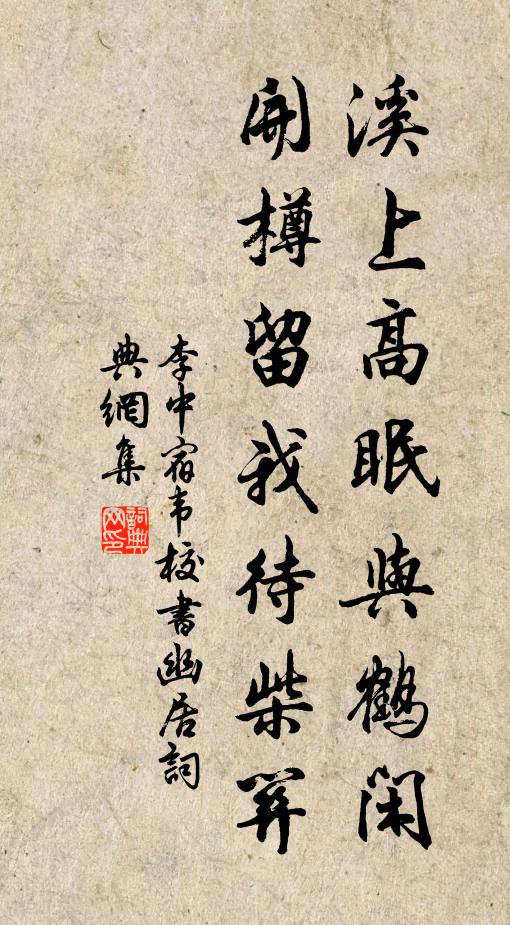 溪上高眠與鶴閑
開樽留我待柴關
李中宿韋校書幽居詞
典網集
詞典
网印